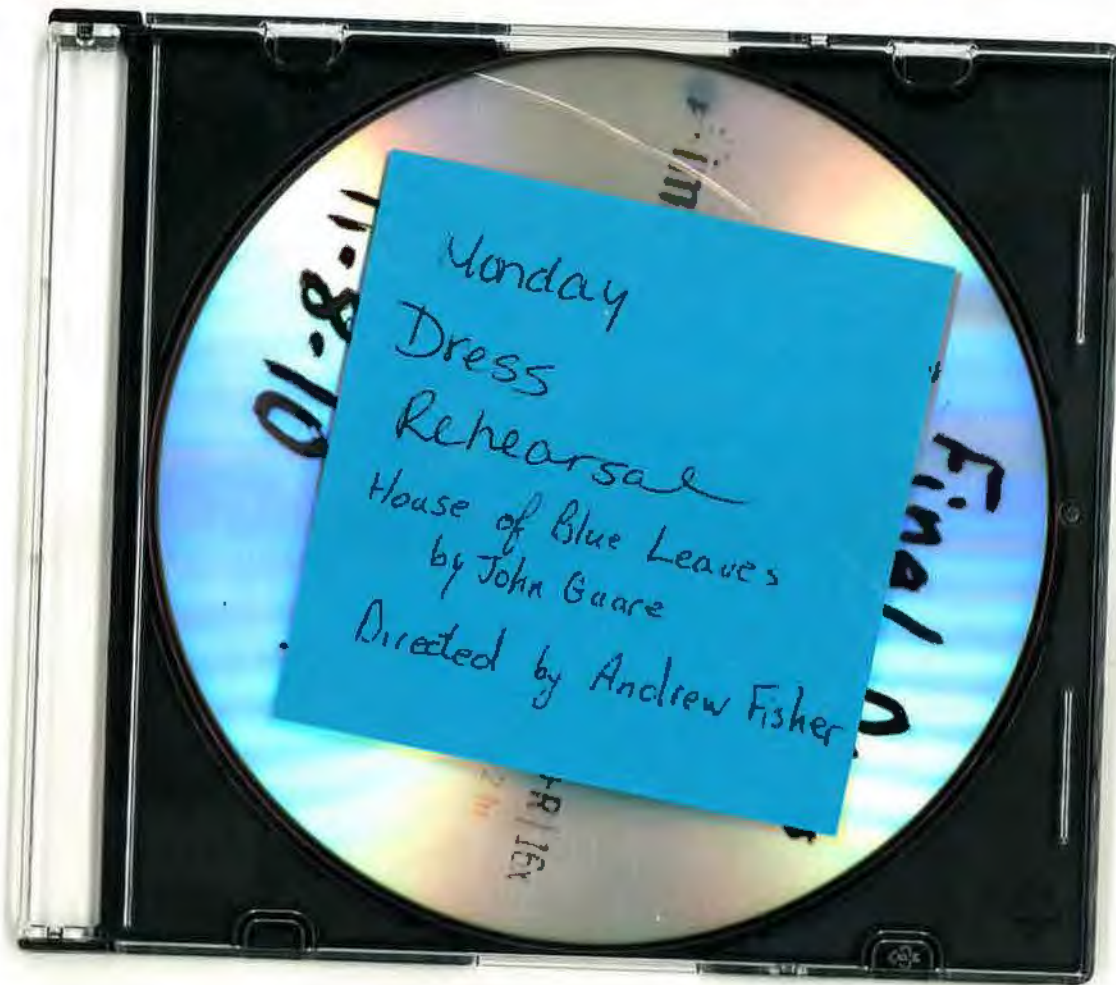 Monday
Dress
Rehearsal
House of Blue Leaves
by John Guare
Directed by Andrew Fisher
11-8-10
Final
+R|16x